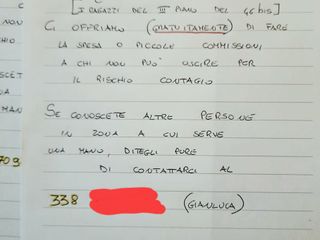 [I RAGAZZI DEL III PIANO DEL 46 bis]
CI OFFRIAMO (GRATUITAMENTE) DI FARE
LA SPESA O PICCOLE COMMISSIONI
A CHI NON PUO' USCIRE PER
IL RISCHIO CONTAGIO
SE CONOSCETE ALTRE PERSONE
IN ZONA A CUI SERVE
UNA MANO, DITEGLI PURE
DI CONTATTARCI AL
338 (GIANLUCA)